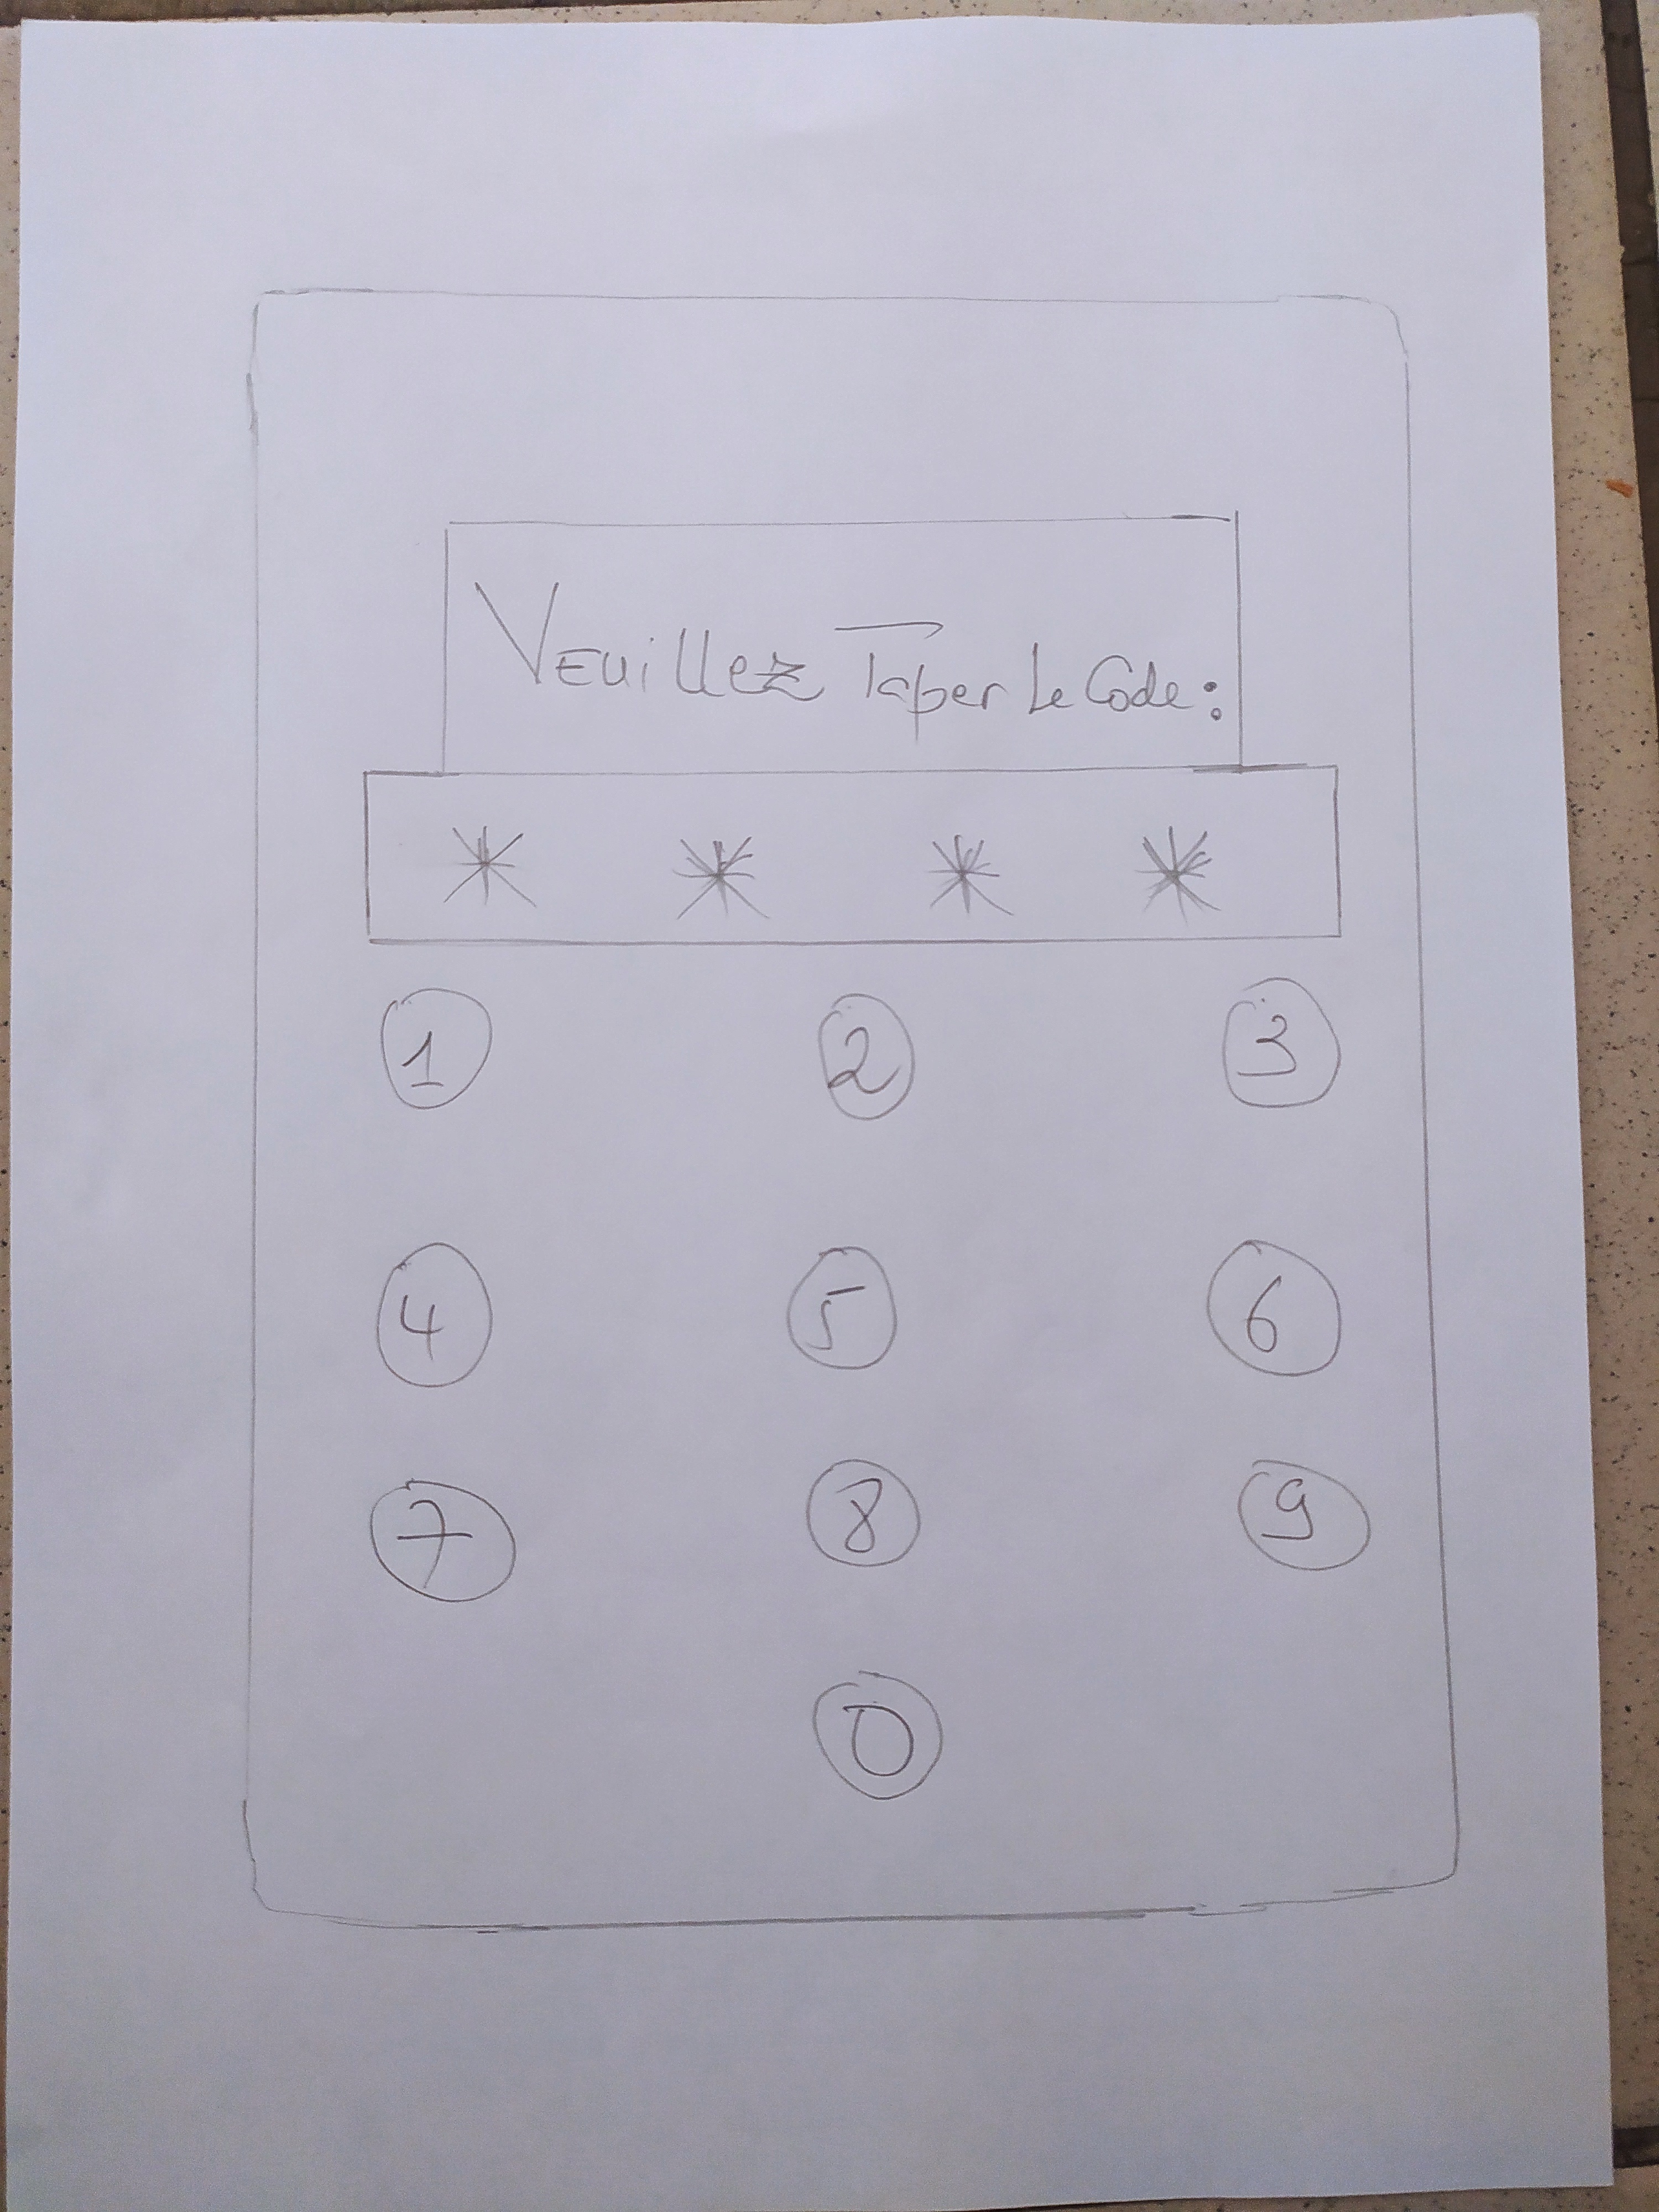 Veuillez Taper Le Code :
* * * *
1 2 3
4 5 6
7 8 9
0